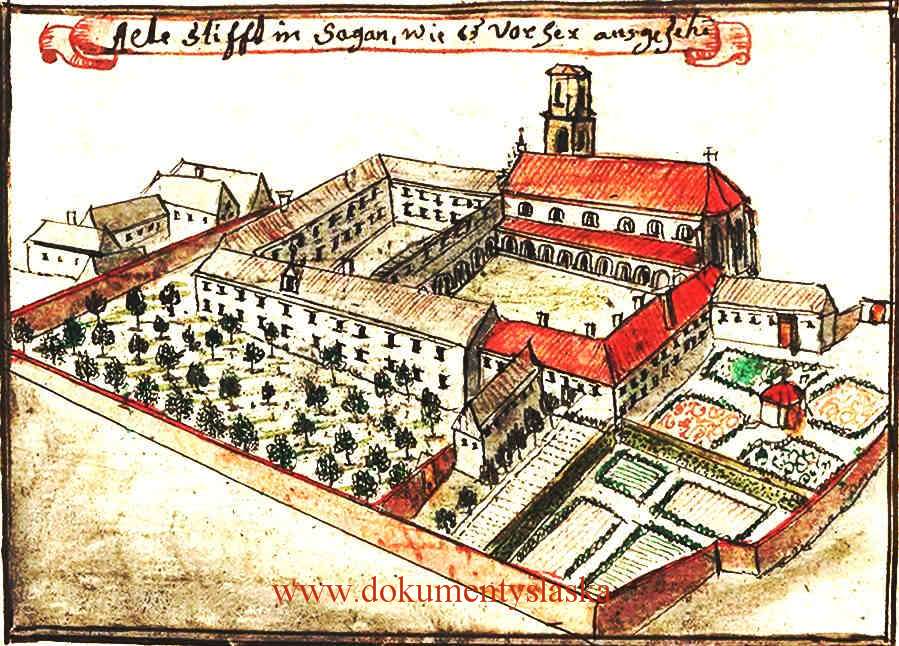 Alte Stifft in Sagan, wie es vorher ausgesehē
www.dokumentyslaska